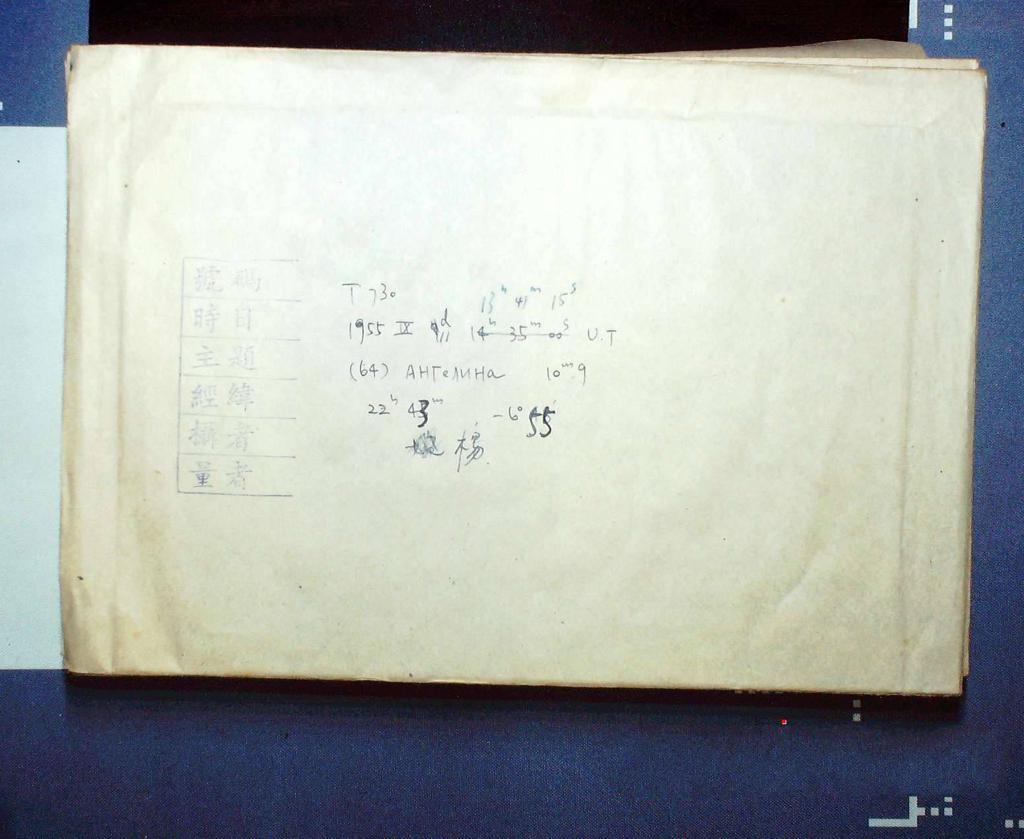 號碼
時日
主題
經緯
攝者
量者
T 730
13ʰ 41ᵐ 15ˢ
1955 IX 14ʰ 35ᵐ 00ˢ U.T
(64) Ангелина 10ᵐ.9
22ʰ 43ᵐ -6° 55′
楊